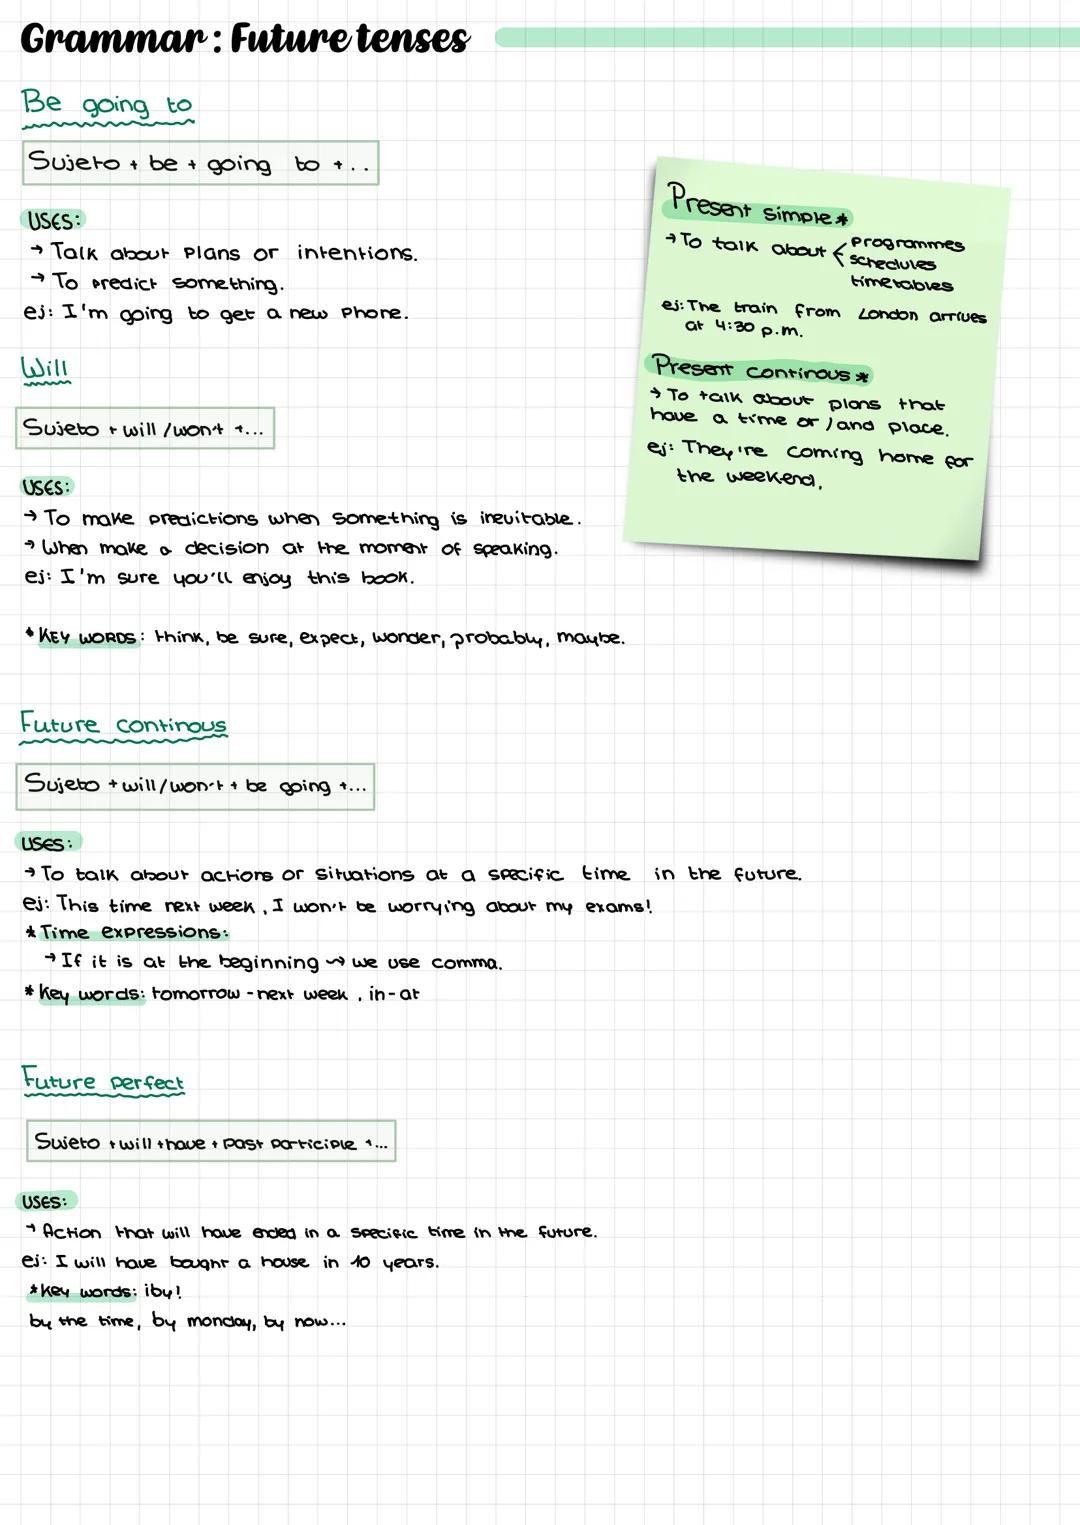 Grammar: Future tenses
Be going to
Sujeto + be + going to +..
USES:
→ Talk about plans or intentions.
→ To predict something.
ej: I'm going to get a new phone.
Will
Sujeto + will/won't +...
USES:
→ To make predictions when something is inevitable.
→ When make a decision at the moment of speaking.
ej: I'm sure you'll enjoy this book.
* KEY WORDS: think, be sure, expect, wonder, probably, maybe.
Present simple *
→ To talk about programmes
schedules
timetables
ej: The train from London arrives
at 4:30 p.m.
Present continous *
→ To talk about plans that
have a time or/and place.
ej: They're coming home for
the weekend.
Future continous
Sujeto + will/won't + be going +...
USES:
→ To talk about actions or situations at a specific time in the future.
ej: This time next week, I won't be worrying about my exams!
* Time expressions:
→ If it is at the beginning ⇝ we use comma.
* Key words: tomorrow - next week, in - at
Future perfect
Sujeto + will + have + past participle +...
USES:
→ Action that will have ended in a specific time in the future.
ej: I will have bought a house in 10 years.
* Key words: ¡by!
by the time, by monday, by now...